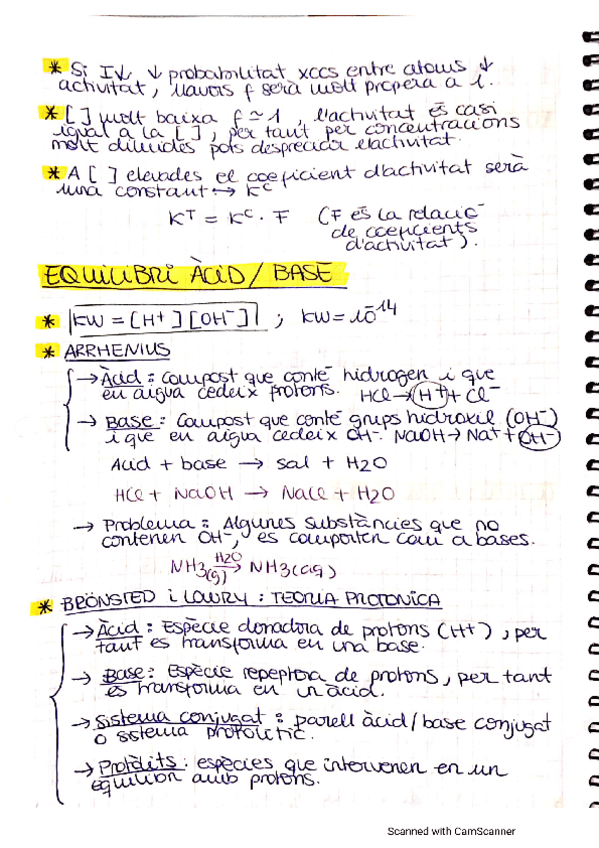 * Si I↓, ↓ probabilitat xccs entre atoms ↓
activitat, llavors f serà molt propera a 1.
* [ ] molt baixa f ≃ 1, l'activitat és casi
igual a la [ ], per tant per concentracions
molt diluides pots despreciar l'activitat.
* A [ ] elevades el coeficient d'activitat serà
una constant → Kc
KT = Kc · F (F és la relació
de coeficients
d'activitat).
EQUILIBRI ÀCID / BASE
* KW = [H+][OH-] ; KW = 10-14
* ARRHENIUS
→ Àcid : Compost que conté hidrogen i que
en aigua cedeix protons. HCl → H+ + Cl-
→ Base : Compost que conté grups hidroxil (OH-)
i que en aigua cedeix OH-. NaOH → Na+ + OH-
Acid + base → sal + H2O
HCl + NaOH → NaCl + H2O
→ Problema : Algunes substàncies que no
contenen OH-, es comporten com a bases.
NH3(g) H2O→ NH3(aq)
* BRÖNSTED i LOWRY : TEORIA PROTONICA
→ Àcid : Espècie donadora de protons (H+), per
tant es transforma en una base.
→ Base : Espècie repeptora de protons, per tant
es transforma en un àcid.
→ Sistema conjugat : parell àcid/base conjugat
o sistema protolitic.
→ Protòlits : espècies que intervenen en un
equilibri amb protons.
Scanned with CamScanner